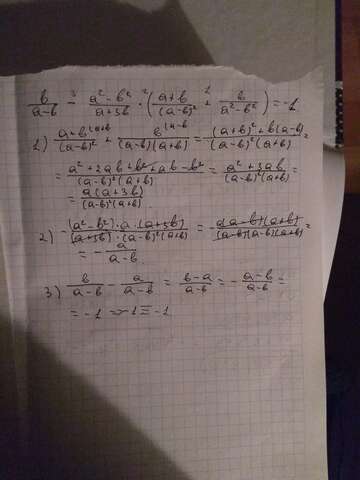 b/(a-b) -³ (a²-b²)/(a+3b) ·² ((a+b)/(a-b)² +¹ b/(a²-b²)) = -1
1) (a+b^(a+b)/(a-b)² + b^(a-b)/((a-b)(a+b)) = ((a+b)²+b(a-b))/((a-b)²(a+b)) =
= (a²+2ab+b²+ab-b²)/((a-b)²(a+b)) = (a²+3ab)/((a-b)²(a+b)) =
= a(a+3b)/((a-b)²(a+b))
2) -((a²-b²)·a·(a+3b))/((a+3b)·(a-b)²(a+b)) = -(a(a-b)(a+b))/((a-b)(a-b)(a+b)) =
= -a/(a-b)
3) b/(a-b) - a/(a-b) = (b-a)/(a-b) = -(a-b)/(a-b) =
= -1 => -1 ≡ -1